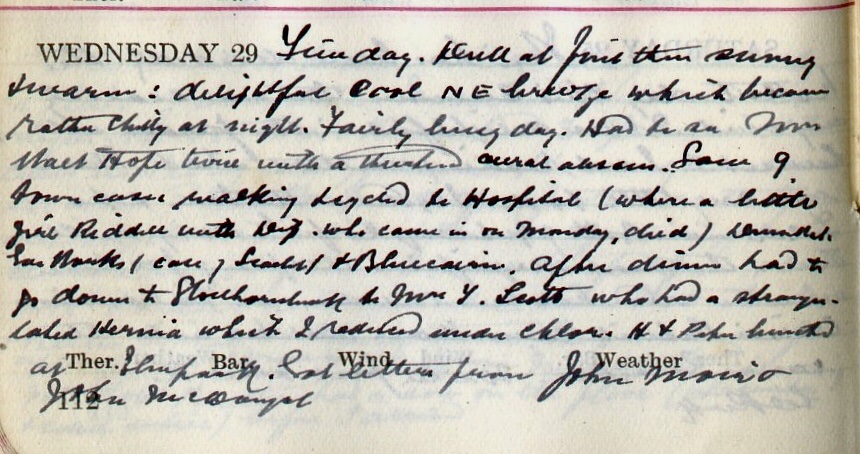 WEDNESDAY 29 Fine day. Dull at first then sunny
& warm: delightful cool NE breeze which became
rather chilly at night. Fairly busy day. Had to see Mrs
Hope twice with a aural abscess. Saw 9
town cases walking cycled to Hospital (where a little
girl Riddell with Dip. who came in on Monday, died)
Banks (case of Scarlet) & Bluecairn. After dinner had to
go down to to Mrs Y. Scott who had a strangu-
lated Hernia which I reduced under Chlor. H & Peter
at Ther. Bar. Wind Weather
Got letters from John
112 John McDougal